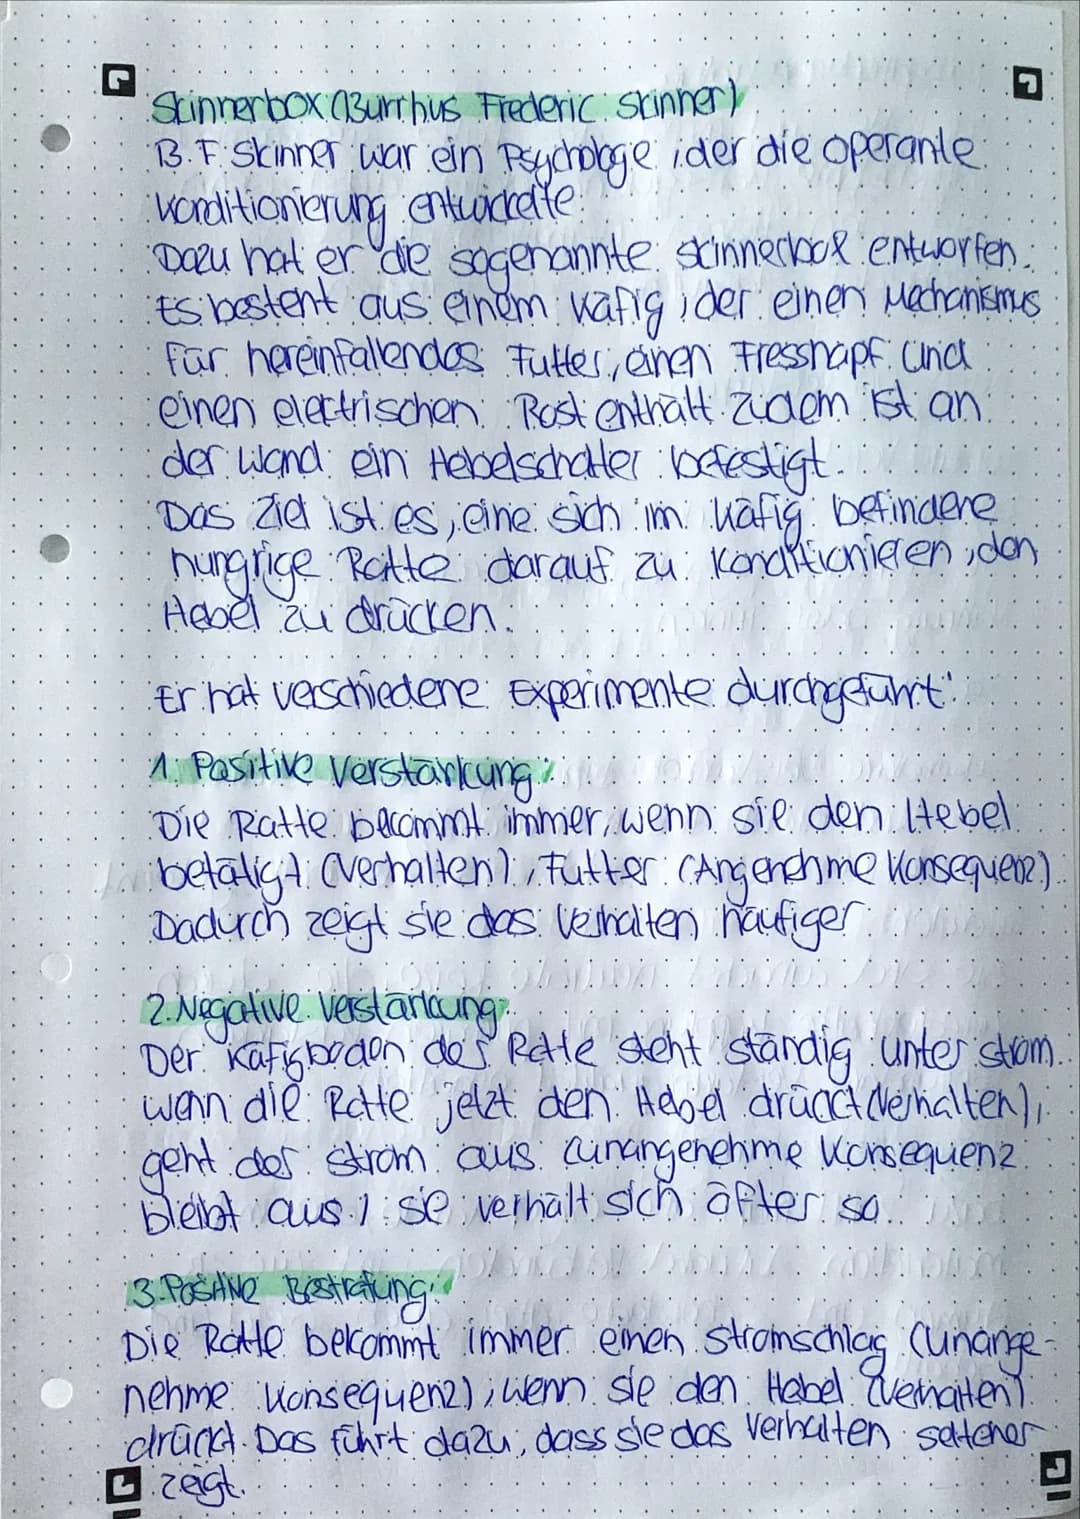 Skinnerbox (Burrhus Frederic Skinner)
B.F. Skinner war ein Psychologe, der die operante
Konditionierung entwickelte.
Dazu hat er die sogenannte Skinnerbox entworfen.
Es besteht aus einem Käfig, der einen Mechanismus
für hereinfallendes Futter, einen Fressnapf und
einen elektrischen Rost enthält. Zudem ist an
der Wand ein Hebelschalter befestigt.
Das Ziel ist es, eine sich im Käfig befindene
hungrige Ratte darauf zu konditionieren, den
Hebel zu drücken.
Er hat verschiedene Experimente durchgeführt:
1. Positive Verstärkung:
Die Ratte bekommt immer, wenn sie den Hebel
betätigt (Verhalten), Futter (Angenehme Konsequenz).
Dadurch zeigt sie das Verhalten häufiger.
2. Negative Verstärkung:
Der Käfigboden der Ratte steht ständig unter Strom.
Wenn die Ratte jetzt den Hebel drückt (Verhalten),
geht der Strom aus (unangenehme Konsequenz
bleibt aus.) sie verhält sich öfter so.
3. Positive Bestrafung:
Die Ratte bekommt immer einen Stromschlag (Unange-
nehme Konsequenz), wenn sie den Hebel (Verhalten)
drückt. Das führt dazu, dass sie das Verhalten seltener
zeigt.